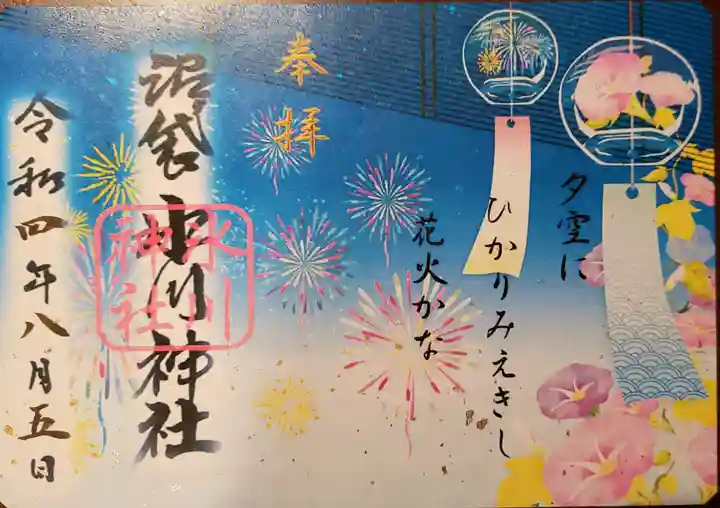 夕空に
ひかりみえきし
花火かな
奉拝
沼袋氷川神社
氷川
神社
令和四年八月五日